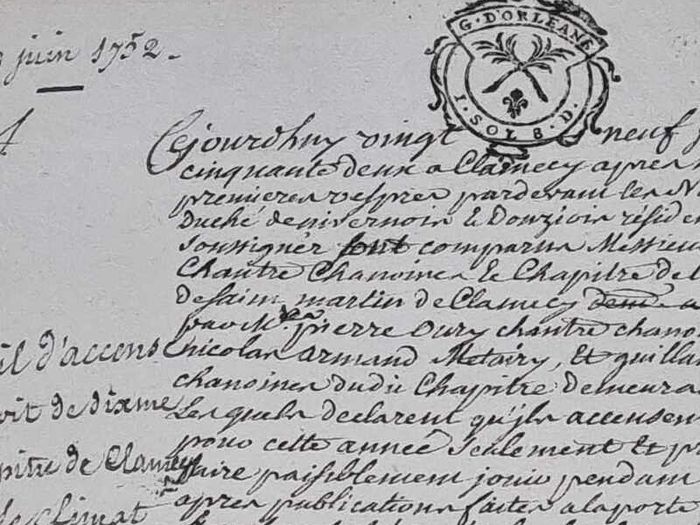 juin 1752.
G. D'ORLEANS
1. SOL 8. D.
Cejourdhuy vingt neuf
cinquante deux a Clamecy apres
premieres vespres pardevant les
Duché denivernois & Donziois résiden
soussignés sont comparus Messieu
Chantre Chanoines & Chapitre de
desaint martin de Clamecy
par Me. pierre Oury chantre chano
nicolas armand Metairy, Et guilla
chanoines dudit Chapitre Demeura
Lesquels declarent qu'ils accensen
pour cette année seulement Et pr
faire paisiblement jouir pendant
apres publications faites alaporte
il d'accens
oit de dixme
pitre de Clamecy
le climat